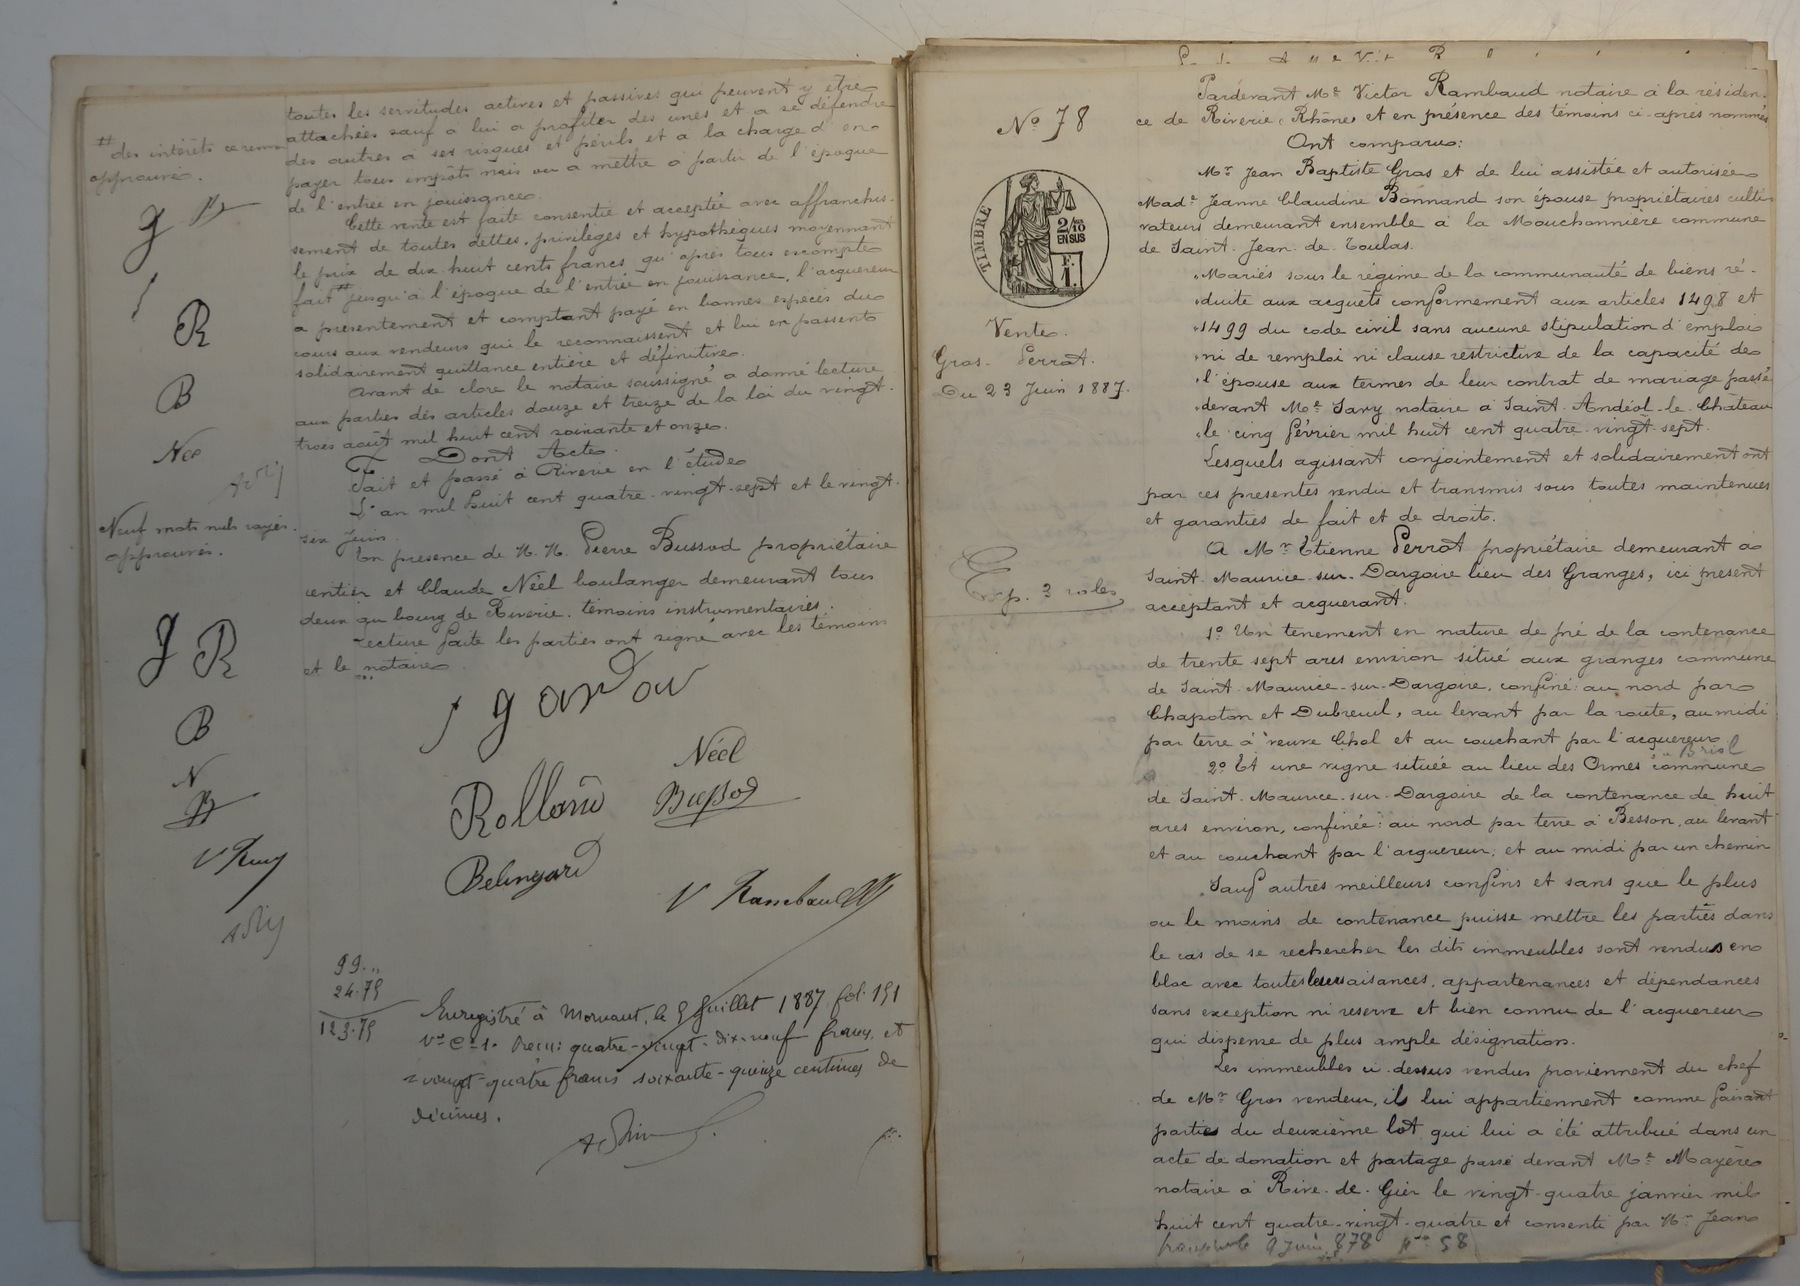 toutes les servitudes actives et passives qui peuvent y être
attachées sauf a lui a profiter des unes et a se défendre
des autres à ses risques et périls et a la charge d'en
payer tous impôts mis ou a mettre a partir de l'époque
de l'entrée en jouissance.
Cette vente est faite consentie et acceptée avec affranchis-
sement de toutes dettes, privilèges et hypothèques moyennant
le prix de dix huit cents francs qu'après tous escompte
fait # jusqu'à l'époque de l'entrée en jouissance, l'acquereur
a présentement et comptant payé en bonnes espèces du
cours aux vendeurs qui le reconnaissent et lui en passent
solidairement quittance entière et définitive.
Avant de clore le notaire soussigné a donné lecture
aux parties des articles douze et treize de la loi du vingt-
trois août mil huit cent soixante et onze.
Dont Acte.
Fait et passé à Riverie en l'étude
L'an mil huit cent quatre-vingt-sept et le vingt-
six Juin.
En présence de M. M. Pierre Bussod propriétaire
rentier et Claude Néel boulanger demeurant tous
deux au bourg de Riverie, témoins instrumentaires.
Lecture faite les parties ont signé avec les témoins
et le notaire
# des intérêts ce renvoi
approuvé.
g
R
B
Nee
Neuf mots nuls rayés
approuvés.
J R
B
N
B
Néel
Rolland
Bussod
V Rambaud
99. "
24.75
123.75
Enregistré à Mornant, le 5 Juillet 1887, fol. 151
Vo Ce 1. Reçu: quatre-vingt-dix-neuf francs, et
vingt-quatre francs soixante-quinze centimes de
décimes.
Pardevant Me Victor Rambaud notaire à la résiden-
ce de Riverie (Rhône) et en présence des témoins ci-après nommés
Ont comparu:
No 78
TIMBRE
2/10
EN SUS
F.
1.
Vente.
Gros-Perrot.
Du 23 Juin 1887.
Exp. 3 roles
Mr Jean Baptiste Gras et de lui assistée et autorisée
Made Jeanne Claudine Bonnand son épouse propriétaires culti-
vateurs demeurant ensemble à la Mouchonnière commune
de Saint-Jean-de-Toulas.
"Mariés sous le régime de la communauté de biens ré-
"duite aux acquêts conformement aux articles 1498 et
"1499 du code civil sans aucune stipulation d'emploi
"ni de remploi ni clause restrictive de la capacité de
"l'épouse aux termes de leur contrat de mariage passé
"devant Me Savy notaire à Saint-Andéol-le-Château
"le cinq février mil huit cent quatre-vingt-sept.
Lesquels agissant conjointement et solidairement ont
par ces présentes vendu et transmis sous toutes maintenues
et garanties de fait et de droit.
A Mr Etienne Perrot propriétaire demeurant à
Saint-Maurice-sur-Dargoire lieu des Granges, ici présent
acceptant et acquerant.
1o Un tenement en nature de pré de la contenance
de trente sept ares environ situé aux granges commune
de Saint-Maurice-sur-Dargoire, confiné: au nord par
Chapoton et Dubreuil, au levant par la route, au midi
par terre à veuve Chol et au couchant par l'acquereur.
2o Et une vigne située au lieu des Ormes commune
de Saint-Maurice-sur-Dargoire de la contenance de huit
ares environ, confinée: au nord par terre à Besson, au levant
et au couchant par l'acquereur, et au midi par un chemin
Sauf autres meilleurs confins et sans que le plus
ou le moins de contenance puisse mettre les parties dans
le cas de se rechercher les dits immeubles sont vendus en
bloc avec toutes leurs aisances, appartenances et dépendances
sans exception ni reserve et bien connu de l'acquereur
qui dispense de plus ample désignation.
Les immeubles ci-dessus vendus proviennent du chef
de Mr Gros vendeur, ils lui appartiennent comme faisant
parties du deuxième lot qui lui a été attribué dans un
acte de donation et partage passé devant Me Mayère
notaire à Rive-de-Gier le vingt-quatre janvier mil
huit cent quatre-vingt-quatre et consenti par Mr Jean
9 Juin 878 No 58